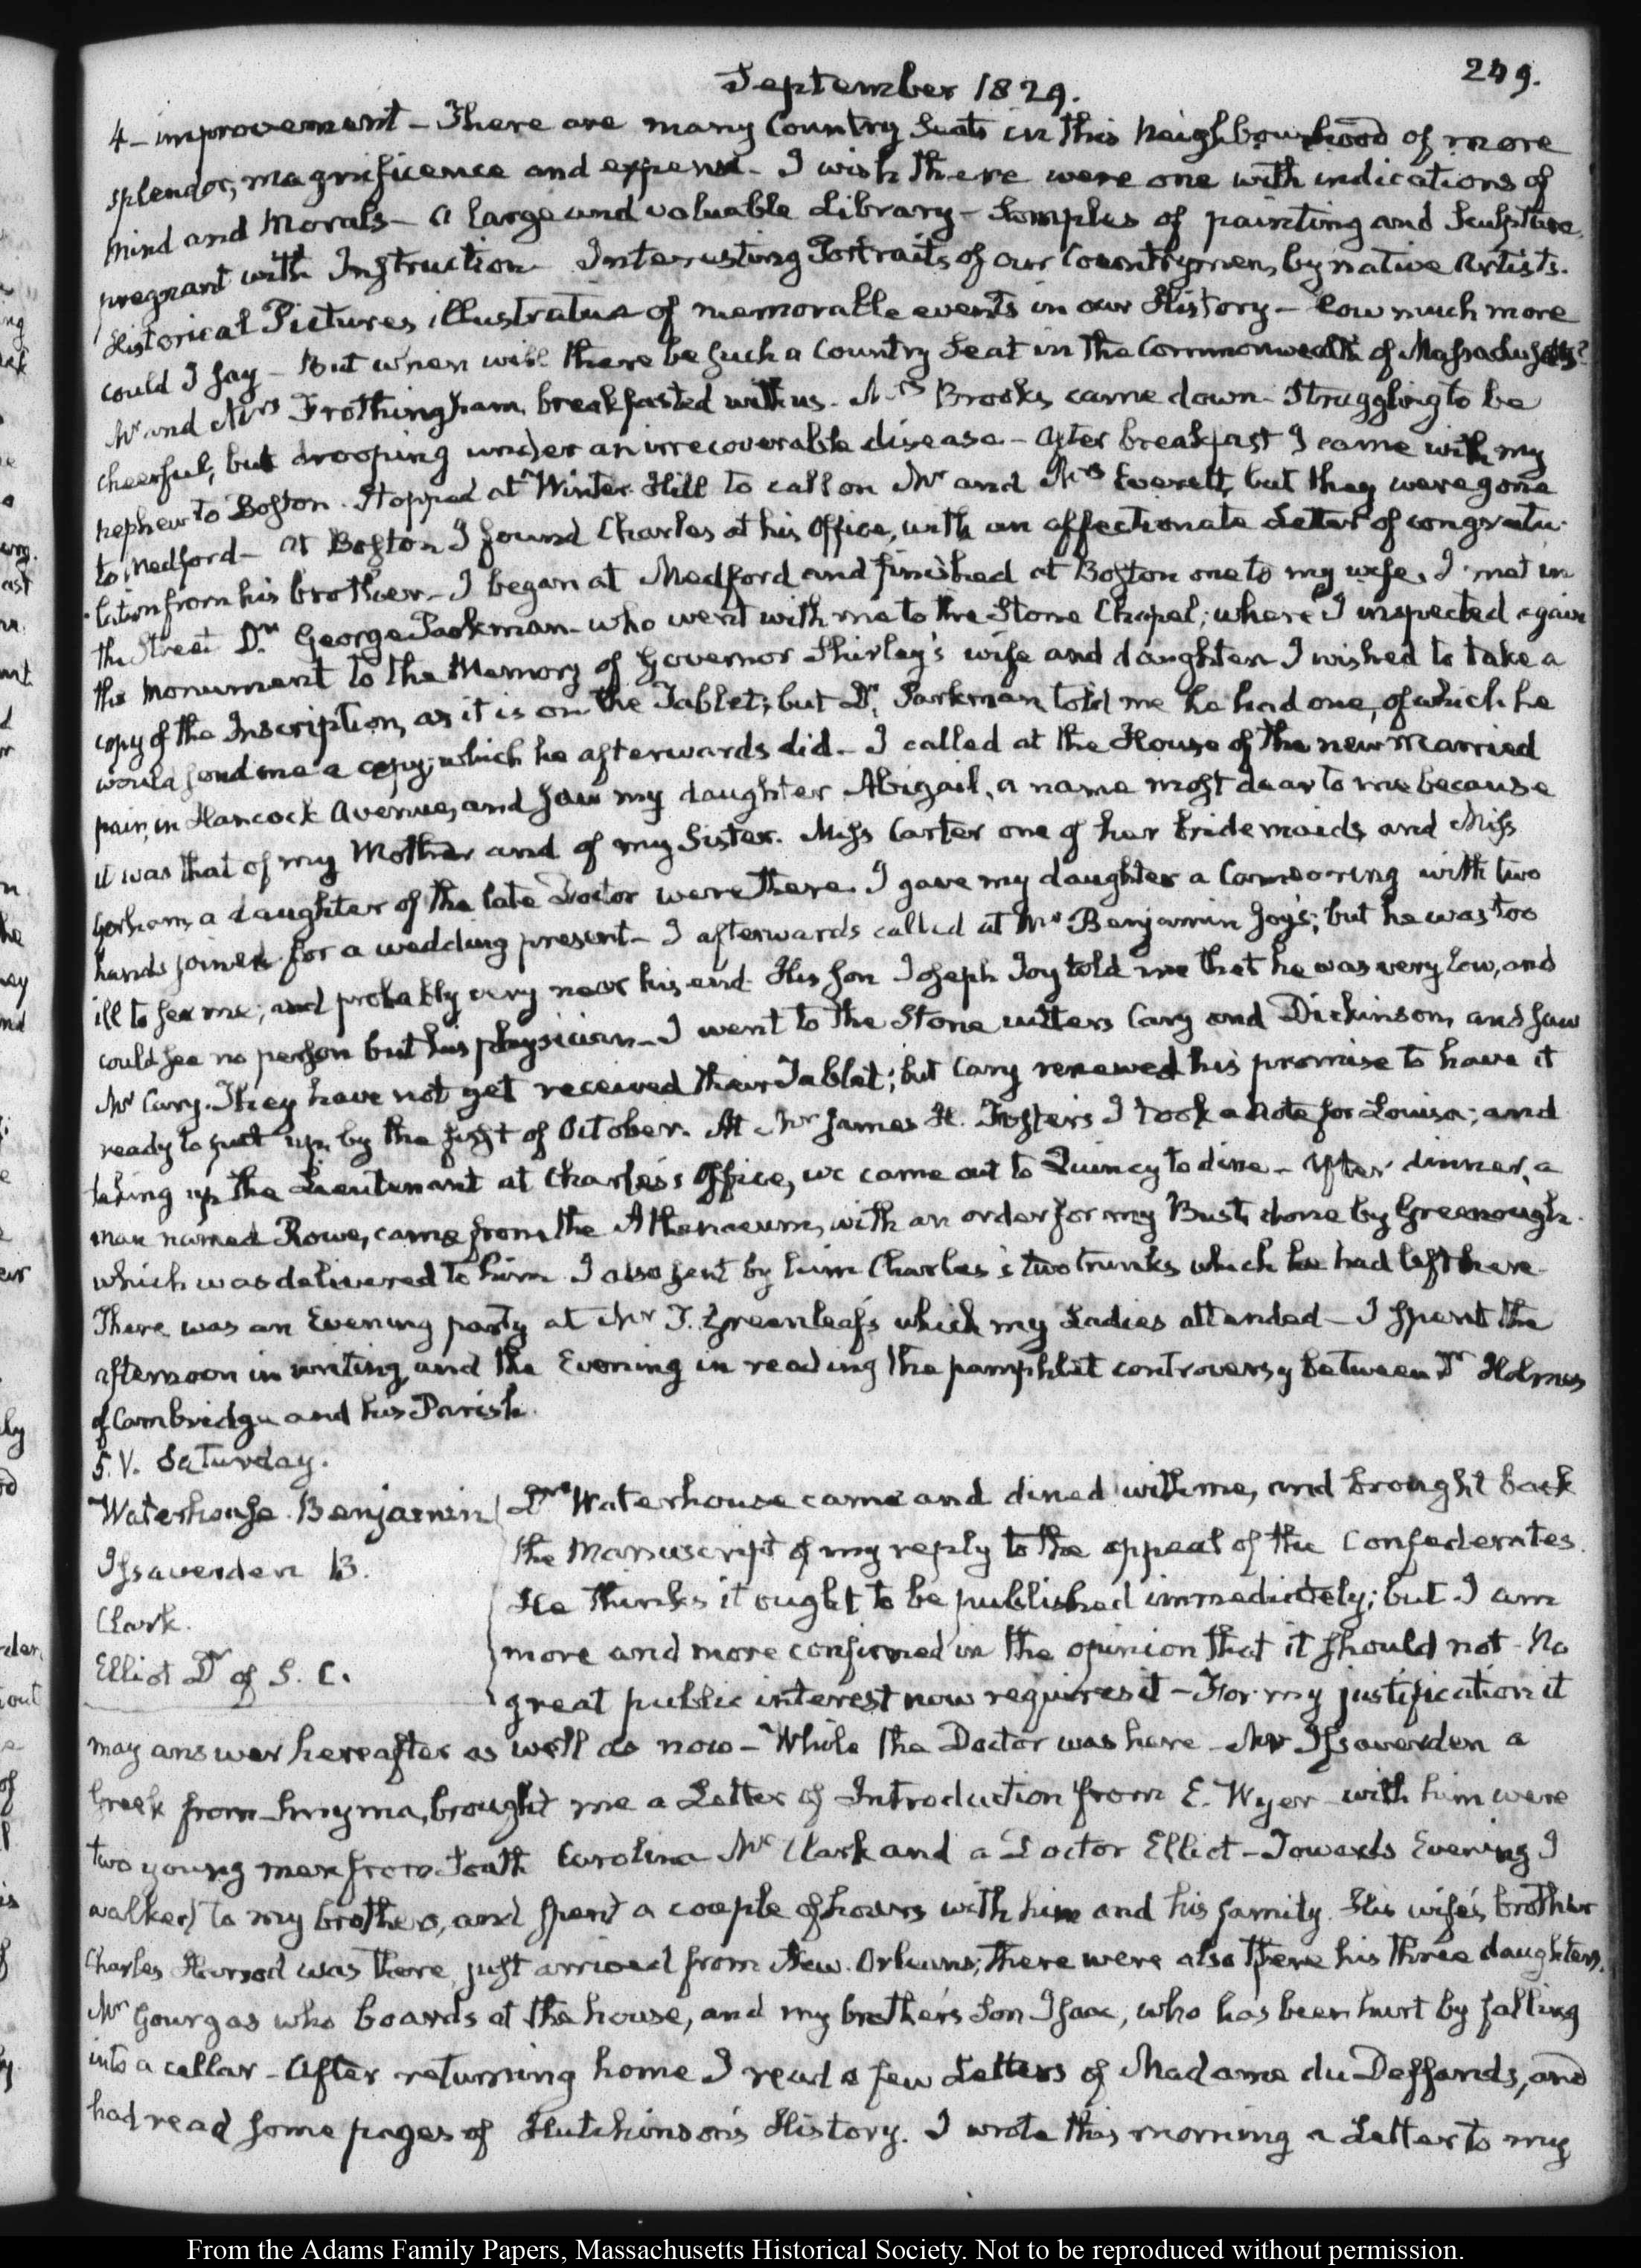 September 1829.
249.
4 - improvement - There are many Country Seats in this Neighbourhood of more
splendor, magnificence and expense - I wish there were one with indications of
Mind and Morals - a large and valuable Library - Samples of painting and Sculpture,
pregnant with Instruction Interesting Portraits of our Countrymen, by native Artists.
Historical Pictures, illustrative of memorable events in our History - how much more
could I say - But when will there be such a Country Seat in the Commonwealth of Massachusetts?
Mr and Mrs Frothingham, breakfasted with us. Mrs Brooks came down - Struggling to be
cheerful, but drooping under an irrecoverable disease - After breakfast I came with my
nephew to Boston. Stopped at Winter Hill to call on Mr and Mrs Everett, but they were gone
to Medford - At Boston I found Charles at his Office, with an affectionate Letter of congratu-
lation from his brother - I began at Medford and finished at Boston one to my wife. I met in
the Street Dr. George Parkman - who went with me to the Stone Chapel; where I inspected again
the Monument to the Memory of Governor Shirley's wife and daughter I wished to take a
copy of the Inscription, as it is on the Tablet; but Dr. Parkman told me he had one, of which he
would send me a copy; which he afterwards did - I called at the House of the new Married
pair, in Hancock Avenue, and saw my daughter Abigail, a name most dear to me because
it was that of my Mother and of my Sister. Miss Carter one of her bridemaids, and Miss
Gorham, a daughter of the late Doctor were there. I gave my daughter a Cameo ring with two
hands joined for a wedding present - I afterwards called at Mr Benjamin Joy's; but he was too
ill to see me; and probably very near his end. His Son Joseph Joy told me that he was very low, and
could see no person but his physician - I went to the Stone cutters Cary and Dickinson, and saw
Mr Cary. They have not yet received their Tablet; but Cary renewed his promise to have it
ready to put up, by the first of October. At Mr James H. Foster's I took a Note for Louisa; and
taking up the Lieutenant at Charles's Office, we came out to Quincy to dine - After dinner, a
man named Rowe, came from the Athenaeum, with an order for my Bust, done by Greenough.
which was delivered to him. I also sent by him Charles's two trunks which he had left here
There was an Evening party at Mr T. Greenleaf's which my Ladies attended - I spent the
afternoon in writing, and the Evening in reading the pamphlet controversy between Dr Holmes
of Cambridge and his Parish.
5. V. Saturday.
Waterhouse. Benjamin
Issaverden B.
Clark.
Elliot Dr of S. C.
Dr Waterhouse came and dined with me, and brought back
the Manuscript of my reply to the appeal of the Confederates.
He thinks it ought to be published immediately; but I am
more and more confirmed in the opinion that it should not - No
great public interest now requires it - For my justification it
may answer hereafter as well as now - While the Doctor was here - Mr Issaverden a
Greek from Smyrna, brought me a Letter of Introduction from E. Wyer - with him were
two young men from South Carolina Mr Clark and a Doctor Elliot - Towards Evening I
walked to my brother's, and spent a couple of hours with him and his family. His wife's brother
Charles Harrod was there, just arrived from New Orleans; there were also there his three daughters,
Mr Gourgas who boards at the house, and my brother's Son Isaac, who has been hurt by falling
into a cellar - After returning home I read a few Letters of Madame du Deffand's, and
had read some pages of Hutchinson's History. I wrote this morning a Letter to my
From the Adams Family Papers, Massachusetts Historical Society. Not to be reproduced without permission.